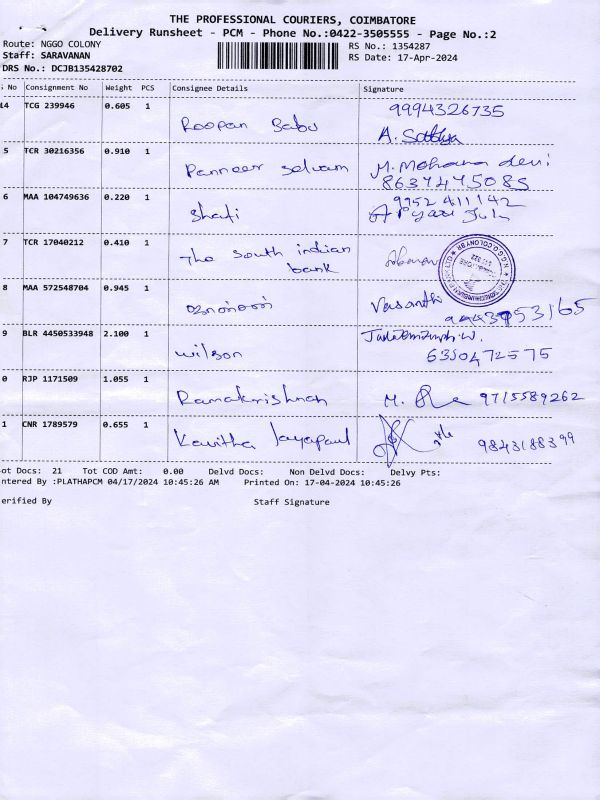 THE PROFESSIONAL COURIERS, COIMBATORE
Delivery Runsheet - PCM - Phone No.:0422-3505555 - Page No.:2
Route: NGGO COLONY
RS No.: 1354287
Staff: SARAVANAN
RS Date: 17-Apr-2024
DRS No.: DCJB135428702
No Consignment No Weight PCS Consignee Details Signature
14 TCG 239946 0.605 1 Roopan Babu 9994326735
A. Sathya
5 TCR 30216356 0.910 1 Panneer selvam M. Mohana devi
8637447508
6 MAA 104749636 0.220 1 Shafi 9952 411142
7 TCR 17040212 0.410 1 The South indian
bank
8 MAA 572548704 0.945 1 Vasanthi
9 BLR 4450533948 2.100 1 Wilson
6380472575
0 RJP 1171509 1.055 1 Ramakrishnan M. 9715589262
1 CNR 1789579 0.655 1 Kavitha Jayapaul 9843188399
ot Docs: 21 Tot COD Amt: 0.00 Delvd Docs: Non Delvd Docs: Delvy Pts:
ntered By :PLATHAPCM 04/17/2024 10:45:26 AM Printed On: 17-04-2024 10:45:26
erified By Staff Signature